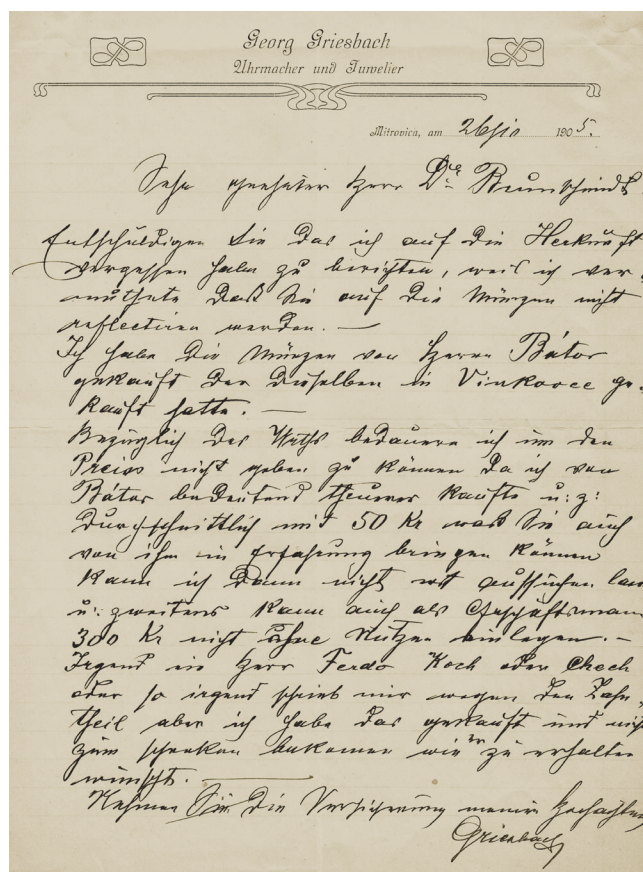 Georg Griesbach
Uhrmacher und Juwelier
Mitrovica, am 26/ 1905.
Sehr geehrter Herr Dr Brunschmidt
Entschuldigen Sie das ich auf die Herkunft
vergessen habe zu berichten, weil ich ver-
muthete daß Sie auf die Münzen nicht
reflectiren werden. —
Ich habe die Münzen von Herrn Bátor
gekauft der dieselben in Vinkovce ge-
kauft hatte. —
Bezüglich des Werths bedauere ich um den
Preiss nicht geben zu können da ich von
Bátor bedeutend theurer kaufte u: z:
durchschnittlich mit 50 Kr was Sie auch
von ihm in Erfahrung bringen können
kann ich dann nicht aussuchen
u: zweitens kann auch als Geschäftsmann
300 Kr nicht ohne Nutzen einlegen. —
Irgend ein Herr Ferdo Koch oder Chech
oder so irgend schrieb mir wegen den
theil aber ich habe das gekauft und nicht
zum schenken bekomen wie er zu erhalten
wünscht. —
Nehmen Sie die Versicherung meiner Hochachtung
Griesbach